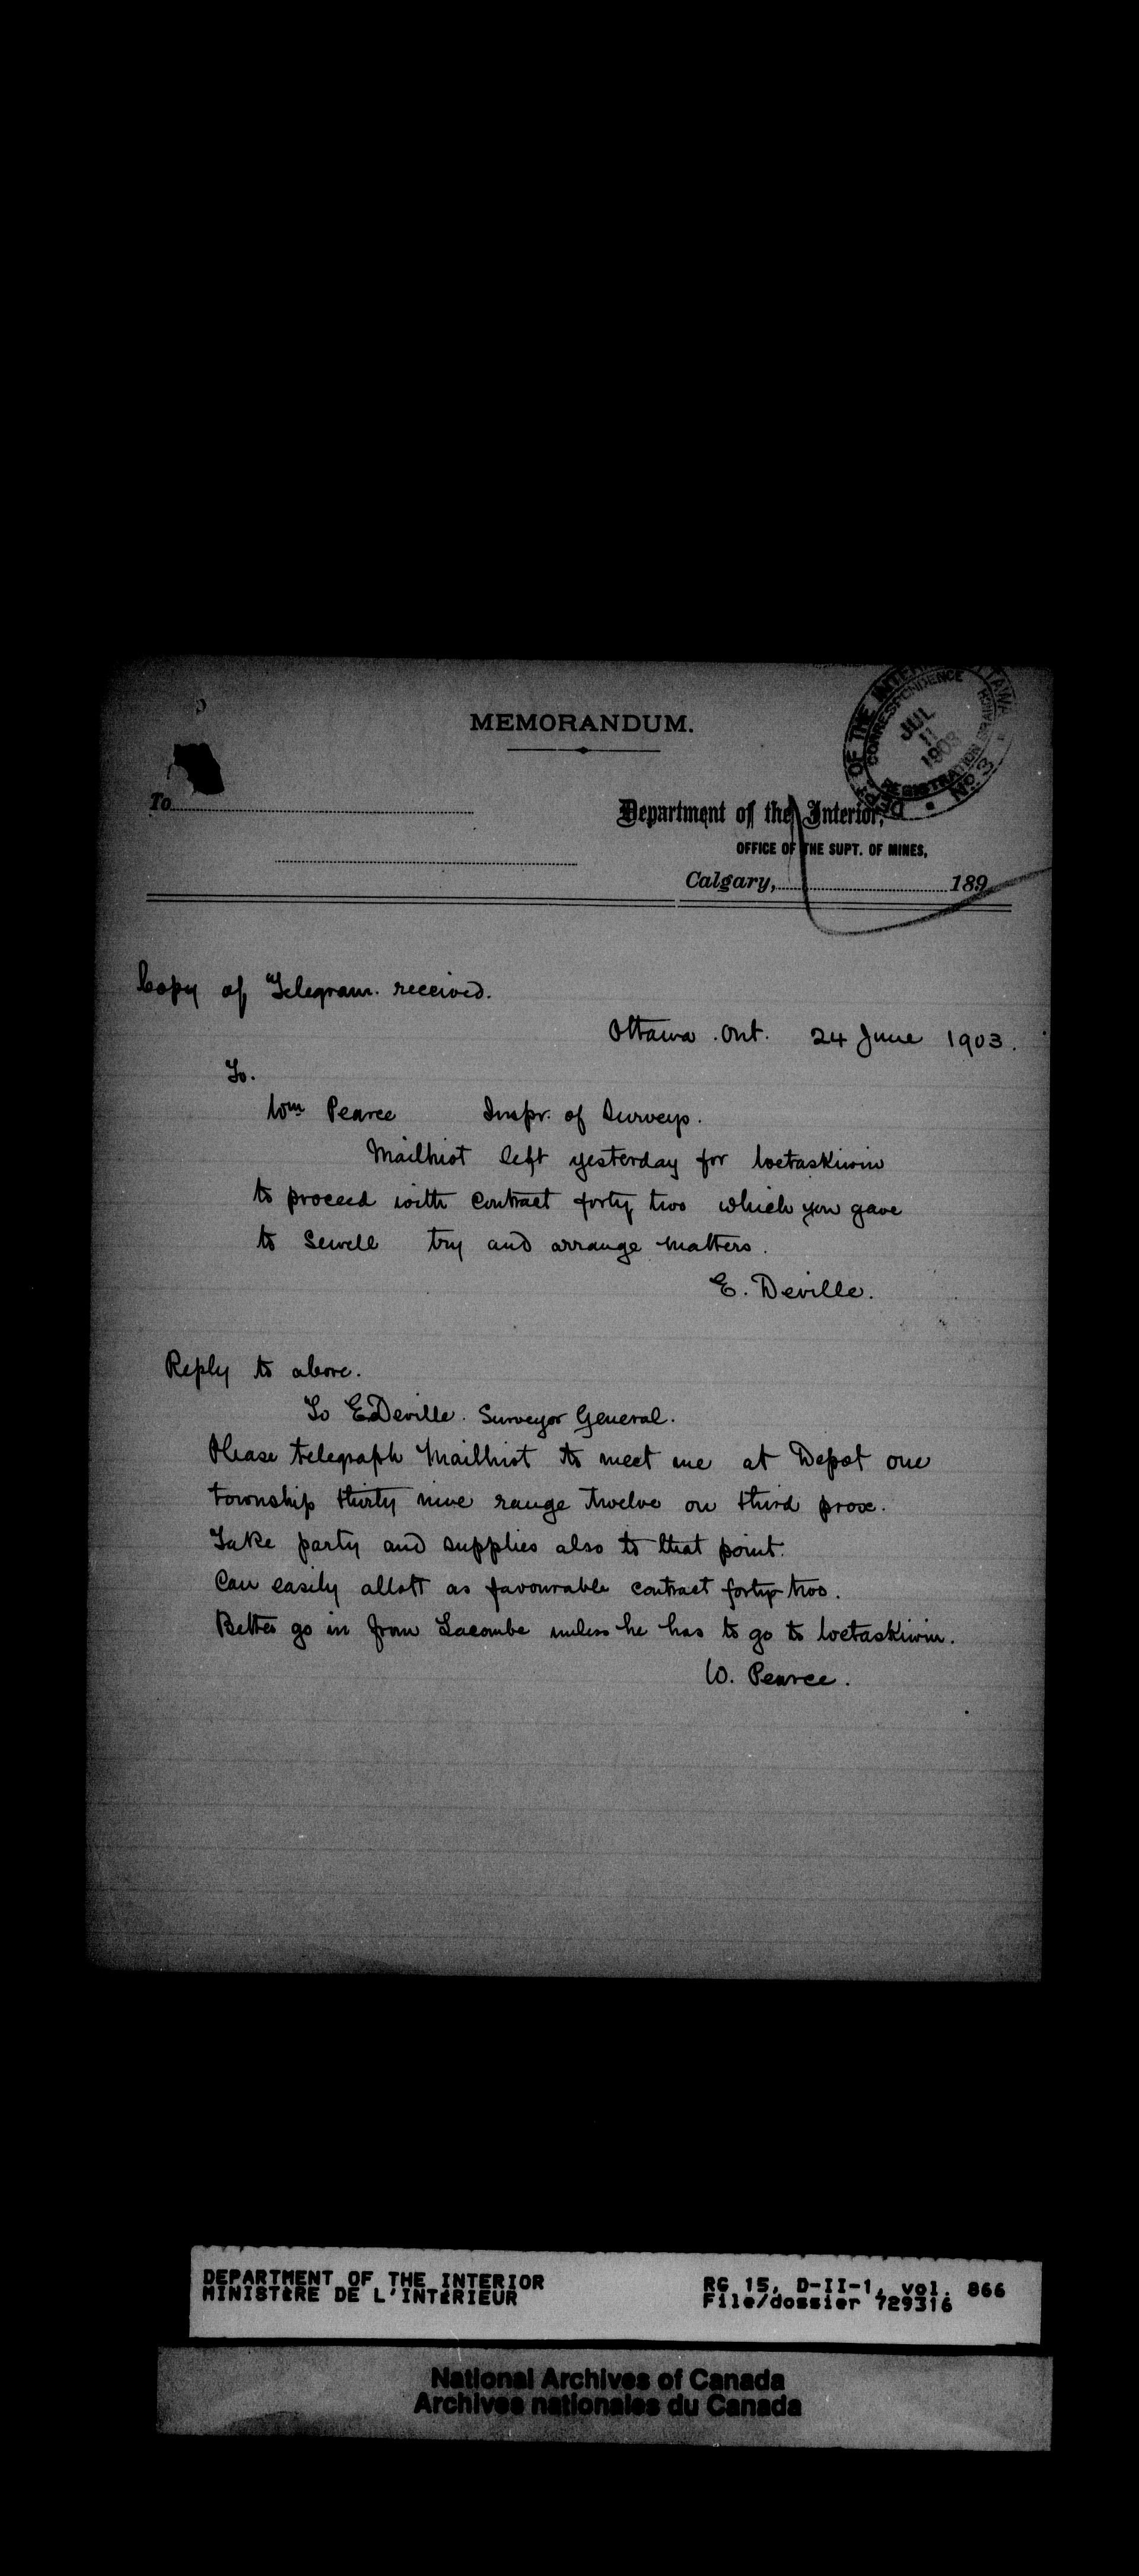 MEMORANDUM.
DEPT. OF THE INTERIOR OTTAWA
CORRESPONDENCE
REGISTRATION BRANCH
JUL
11
1903
No 3
To
Department of the Interior,
OFFICE OF THE SUPT. OF MINES,
Calgary, 189
Copy of Telegram. received.
Ottawa . Ont. 24 June 1903.
To.
Wm Pearce Inspr. of Surveys.
Mailhiot left yesterday for Wetaskiwin
to proceed with contract forty two which you gave
to Sewell try and arrange matters.
E. Deville.
Reply to above.
To E. Deville. Surveyor General.
Please telegraph Mailhiot to meet me at Depot one
township thirty nine range twelve on third prox.
Take party and supplies also to that point.
Can easily allott as favourable contract forty two.
Better go in from Lacombe unless he has to go to Wetaskiwin.
W. Pearce.
DEPARTMENT OF THE INTERIOR RG 15, D-II-1, vol. 866
MINISTÈRE DE L'INTÉRIEUR File/dossier 729316
National Archives of Canada
Archives nationales du Canada